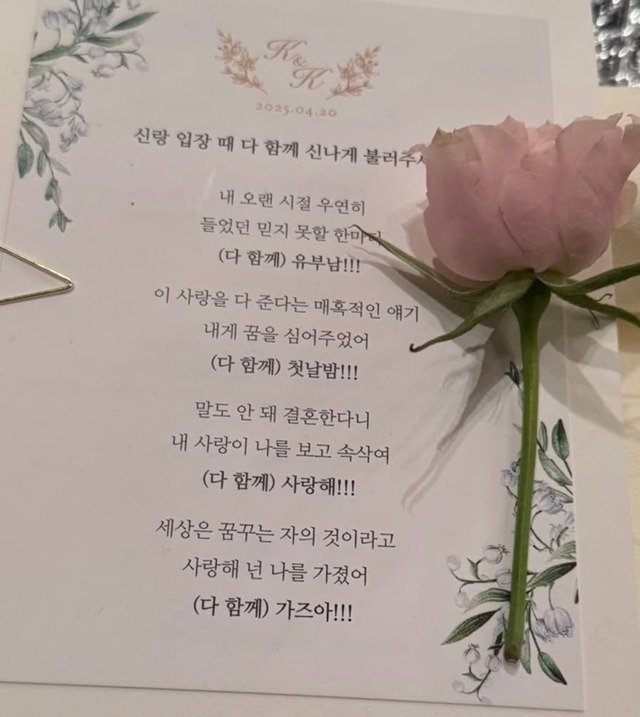 K & K
2025.04.20
신랑 입장 때 다 함께 신나게 불러주
내 오랜 시절 우연히
들었던 믿지 못할 한마디
(다 함께) 유부남!!!
이 사랑을 다 준다는 매혹적인 얘기
내게 꿈을 심어주었어
(다 함께) 첫날밤!!!
말도 안 돼 결혼한다니
내 사랑이 나를 보고 속삭여
(다 함께) 사랑해!!!
세상은 꿈꾸는 자의 것이라고
사랑해 넌 나를 가졌어
(다 함께) 가즈아!!!